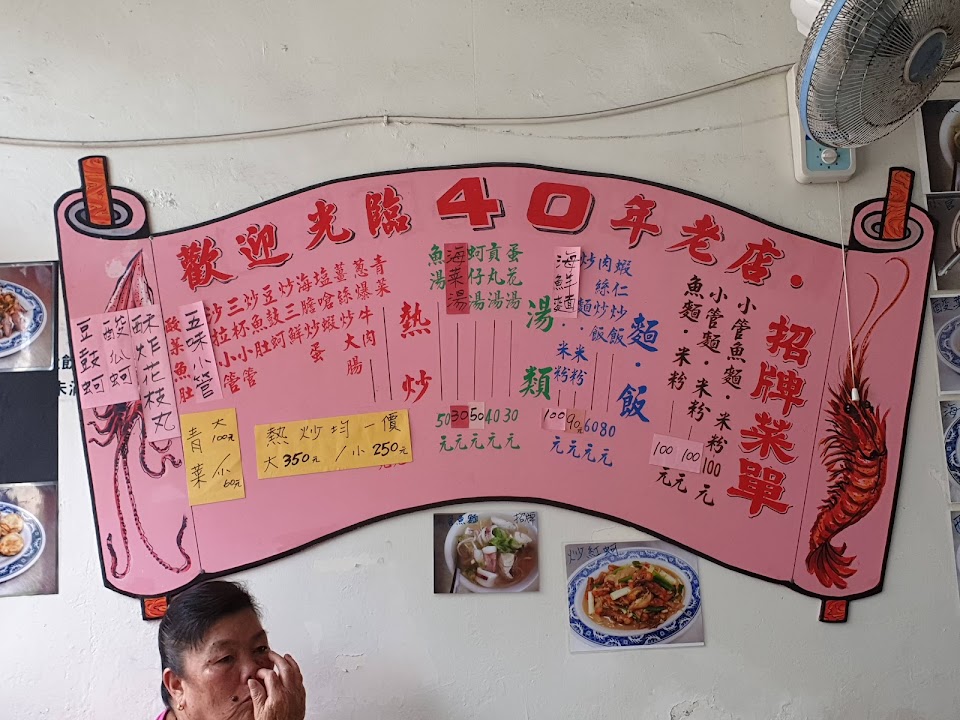 歡迎光臨40年老店.
招牌菜單
小管魚麵·米粉100元
小管麵·米粉100元
魚麵·米粉100元
麵·飯
蝦仁炒飯80元
肉絲炒飯60元
炒麵·米粉90元
海鮮麵·米粉100元
湯類
蛋花湯30元
貢丸湯40元
蚵仔湯50元
海菜湯30元
魚湯50元
熱炒
青菜
蔥爆牛肉
炒大腸
塩嗆蝦
海膽炒蛋
炒三鮮
豆鼓蚵
炒魚肚
三杯小管
沙拉小管
五味小管
菜魚肚
酥炸花枝丸
酸瓜蚵
豆鼓蚵
熱炒均一價
大350元/小250元
青菜
大100元/小60元
招牌
炒紅蚵